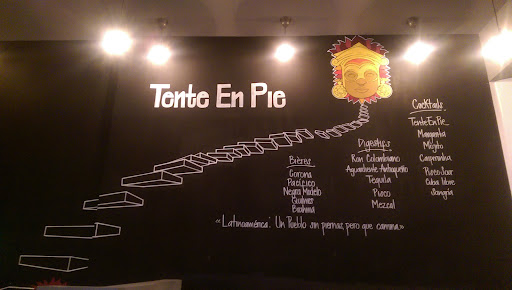 Tente En Pie
Bières
Corona
Pacífico
Negra Modelo
Quilmes
Brahma
Digestifs
Ron Colombiano
Aguardiente Antioqueño
Tequila
Pisco
Mezcal
Cocktails
Tente En Pie
Margarita
Mojito
Caipirinha
Pisco Sour
Cuba libre
Sangria
«Latinoamérica: Un Pueblo sin piernas, pero que camina»